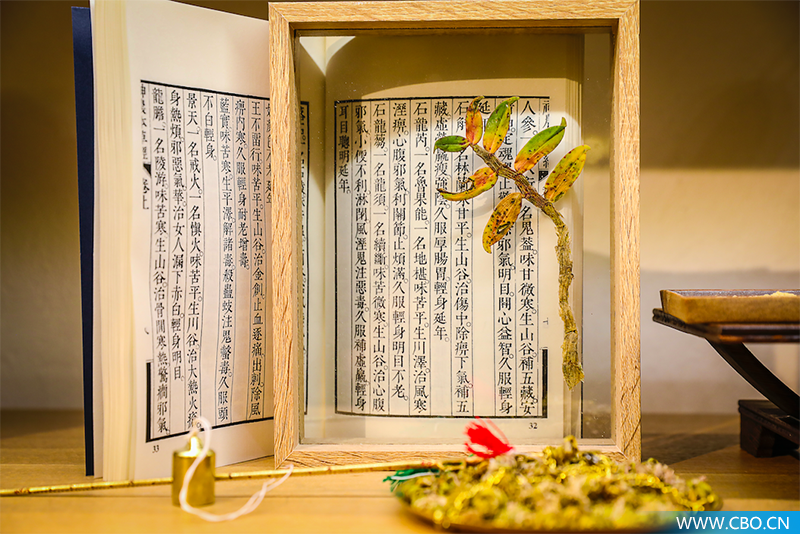 人參。一名鬼蓋。味甘微寒。生山谷。補五藏。安
定魂 邪氣。明目。開心益智。久服輕身
延
石 林蘭 甘平。生山谷。治傷中。除痹。下氣。補五
藏虛 羸瘦。強陰。久服厚腸胃。輕身延年。
石龍芮。一名魯果能。一名地椹。味苦平。生川澤。治風寒
溼痹。心腹邪氣。利關節。止煩滿。久服輕身明目不老。
石龍芻。一名龍須。一名續斷。味苦微寒。生山谷。治心腹
邪氣。小便不利。淋閉。風溼。鬼注。惡毒。久服補虛羸。輕身
耳目聰明延年。
32
延年。
王不留行。味苦平。生山谷。治金創。止血。逐痛。出刺。除風
痹內寒。久服輕身耐老增壽。
藍實。味苦寒。生平澤。解諸毒。殺蠱蚑注鬼螫毒。久服頭
不白輕身。
景天。一名戒火。一名慎火。味苦平。生川谷。治大熱。火瘡。
身熱煩。邪惡氣。華治女人漏下赤白。輕身明目。
龍膽。一名陵游。味苦寒。生山谷。治骨間寒熱。驚癇。邪氣。
神農本草經 卷上
33
WWW.CBO.CN